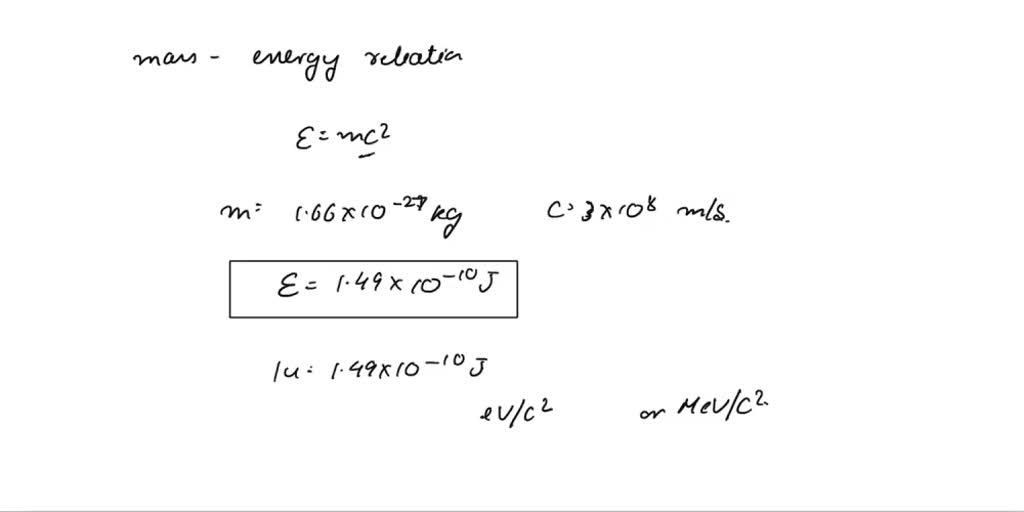 mass - energy relation
E = mc²
m = 1.66 × 10⁻²⁷ kg C = 3 × 10⁸ m/s.
E = 1.49 × 10⁻¹⁰ J
1u = 1.49 × 10⁻¹⁰ J
eV/C² or MeV/C².